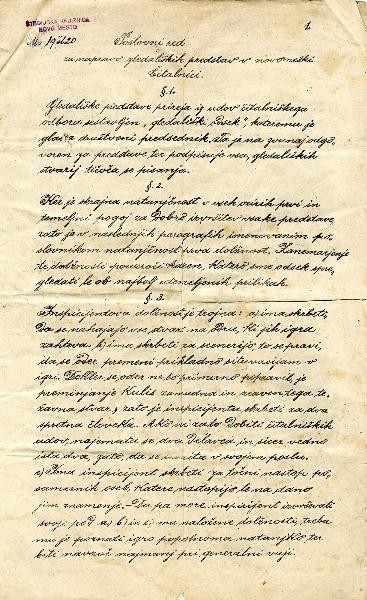 ŠTUDIJSKA KNJIŽNICA
NOVO MESTO
1
Poslovni red
za napravo gledaliških predstav v novomeški
Čitalnici.
§ 1.
Gledališke predstave prireja iz udov čitalniškega
odbora sestavljen „gledališki odsek", kateremu je
glava društveni predsednik. Ta je na zvunaj odgo,
voren za predstave ter podpisuje vsa, gledaliških
stvarij tičoča se pisanja.
§. 2.
Ker je skrajna natanjčnost v vseh rečeh prvi in
temeljni pogoj za dobro izvršitev vsake predstave,
zato je v naslednjih paragrafih imenovanim po,
slovnikom natanjčnost prva dolžnost. Zanemarjenje
te dolžnosti povzroči kazen, katero sme odsek spre,
gledati le ob najbolj utemeljenih prilikah.
§ 3.
Inspicijentova dolžnost je trojna: a) ima skrbeti,
da se nahajajo vse stvari na odru, ki jih igra
zahteva. b) ima skrbeti za scenerijo to se pravi,
da se oder premeni prikladno situvacijam v
igri. Dokler se oder ne bo primerno popravil, je
preminjanje kulis zamudna in zraven tega te,
žavna stvar, zato je inspicijentu skrbeti za dva
spretna človeka. Ako ni zato dobiti čitalniških
udov, najamata se dva delavca in sicer vedno
ista dva, zato, da se izurita v svojem poslu.
c) Ima inspicijent skrbeti za točni nastop po,
sameznih oseb, katere nastopijo le na dano
jim znamenje. – Da pa more inspicijent izvrševati
svoje pod a) b) in c) mu naložene dolžnosti, treba
mu je poznati igro popolnoma natanjko ter
biti navzoč najmanj pri generalni vaji.